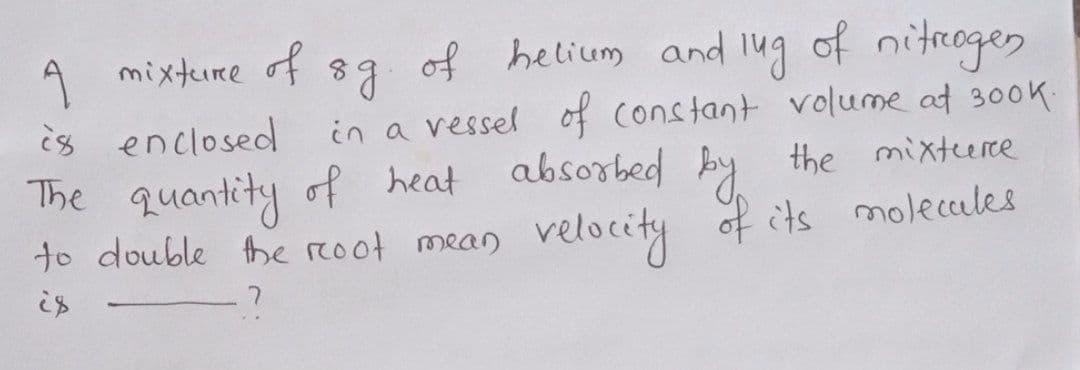 A mixture of 8g. of helium and 14g of nitrogen
is enclosed in a vessel of constant volume at 300K.
The quantity of heat absorbed by the mixture
to double the root mean velocity of its molecules
is ______?